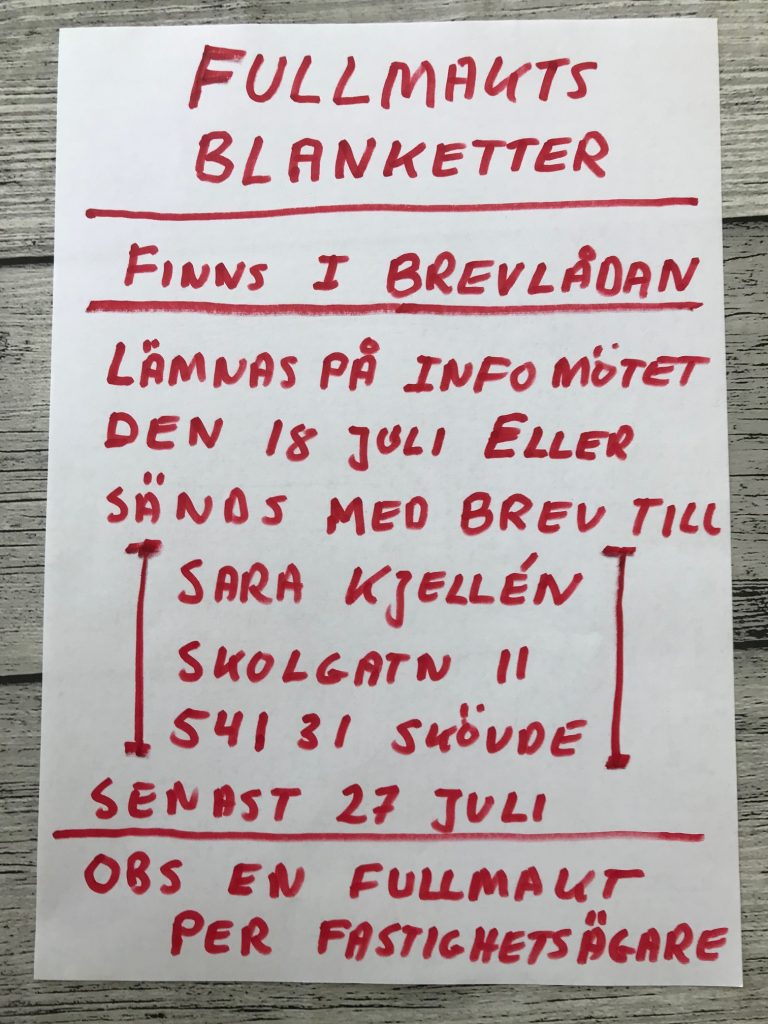 FULLMAKTS
BLANKETTER
FINNS I BREVLÅDAN
LÄMNAS PÅ INFO MÖTET
DEN 18 JULI ELLER
SÄNDS MED BREV TILL
SARA KJELLÉN
SKOLGATN 11
541 31 SKÖVDE
SENAST 27 JULI
OBS EN FULLMAKT
PER FASTIGHETSÄGARE